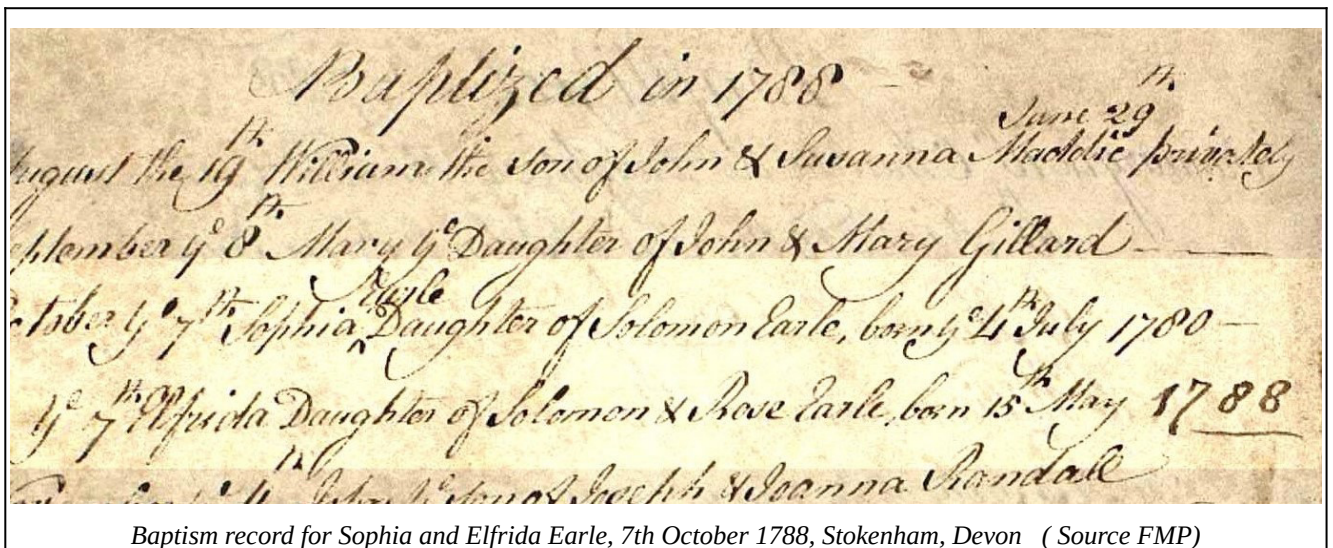 Baptized in 1788
June 29th
August the 19th William the son of John & Susanna Maddie privately
eptember ye 8th Mary ye Daughter of John & Mary Gillard
Earle
ctober ye 7th Sophia ^ Daughter of Solomon Earle, born ye 4th July 1780
ye 7th Elfrida Daughter of Solomon & Rose Earle, born 15th May 1788
ye John ye son of Joseph & Joanna Randall
Baptism record for Sophia and Elfrida Earle, 7th October 1788, Stokenham, Devon ( Source FMP)